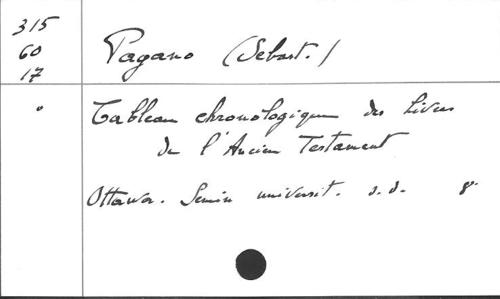 315
60
17
Pagano (Sebast.)
Tableau chronologique des Livres
de l'Ancien Testament
Ottawa. Semin universit. s.d. 8°